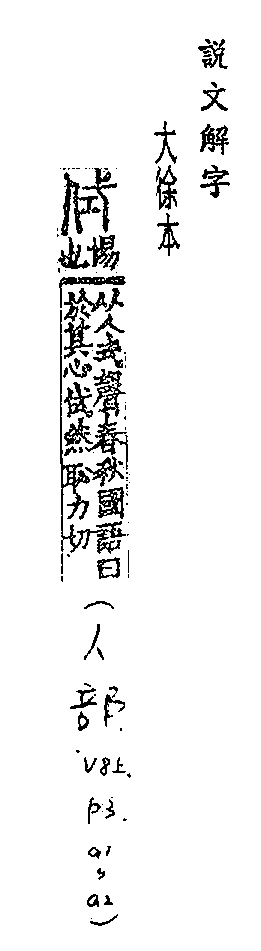 説文解字
大徐本
侙
惕也
从人式聲春秋國語曰
於其心侙然恥力切
(人部.V8上.p3.a1,a2)